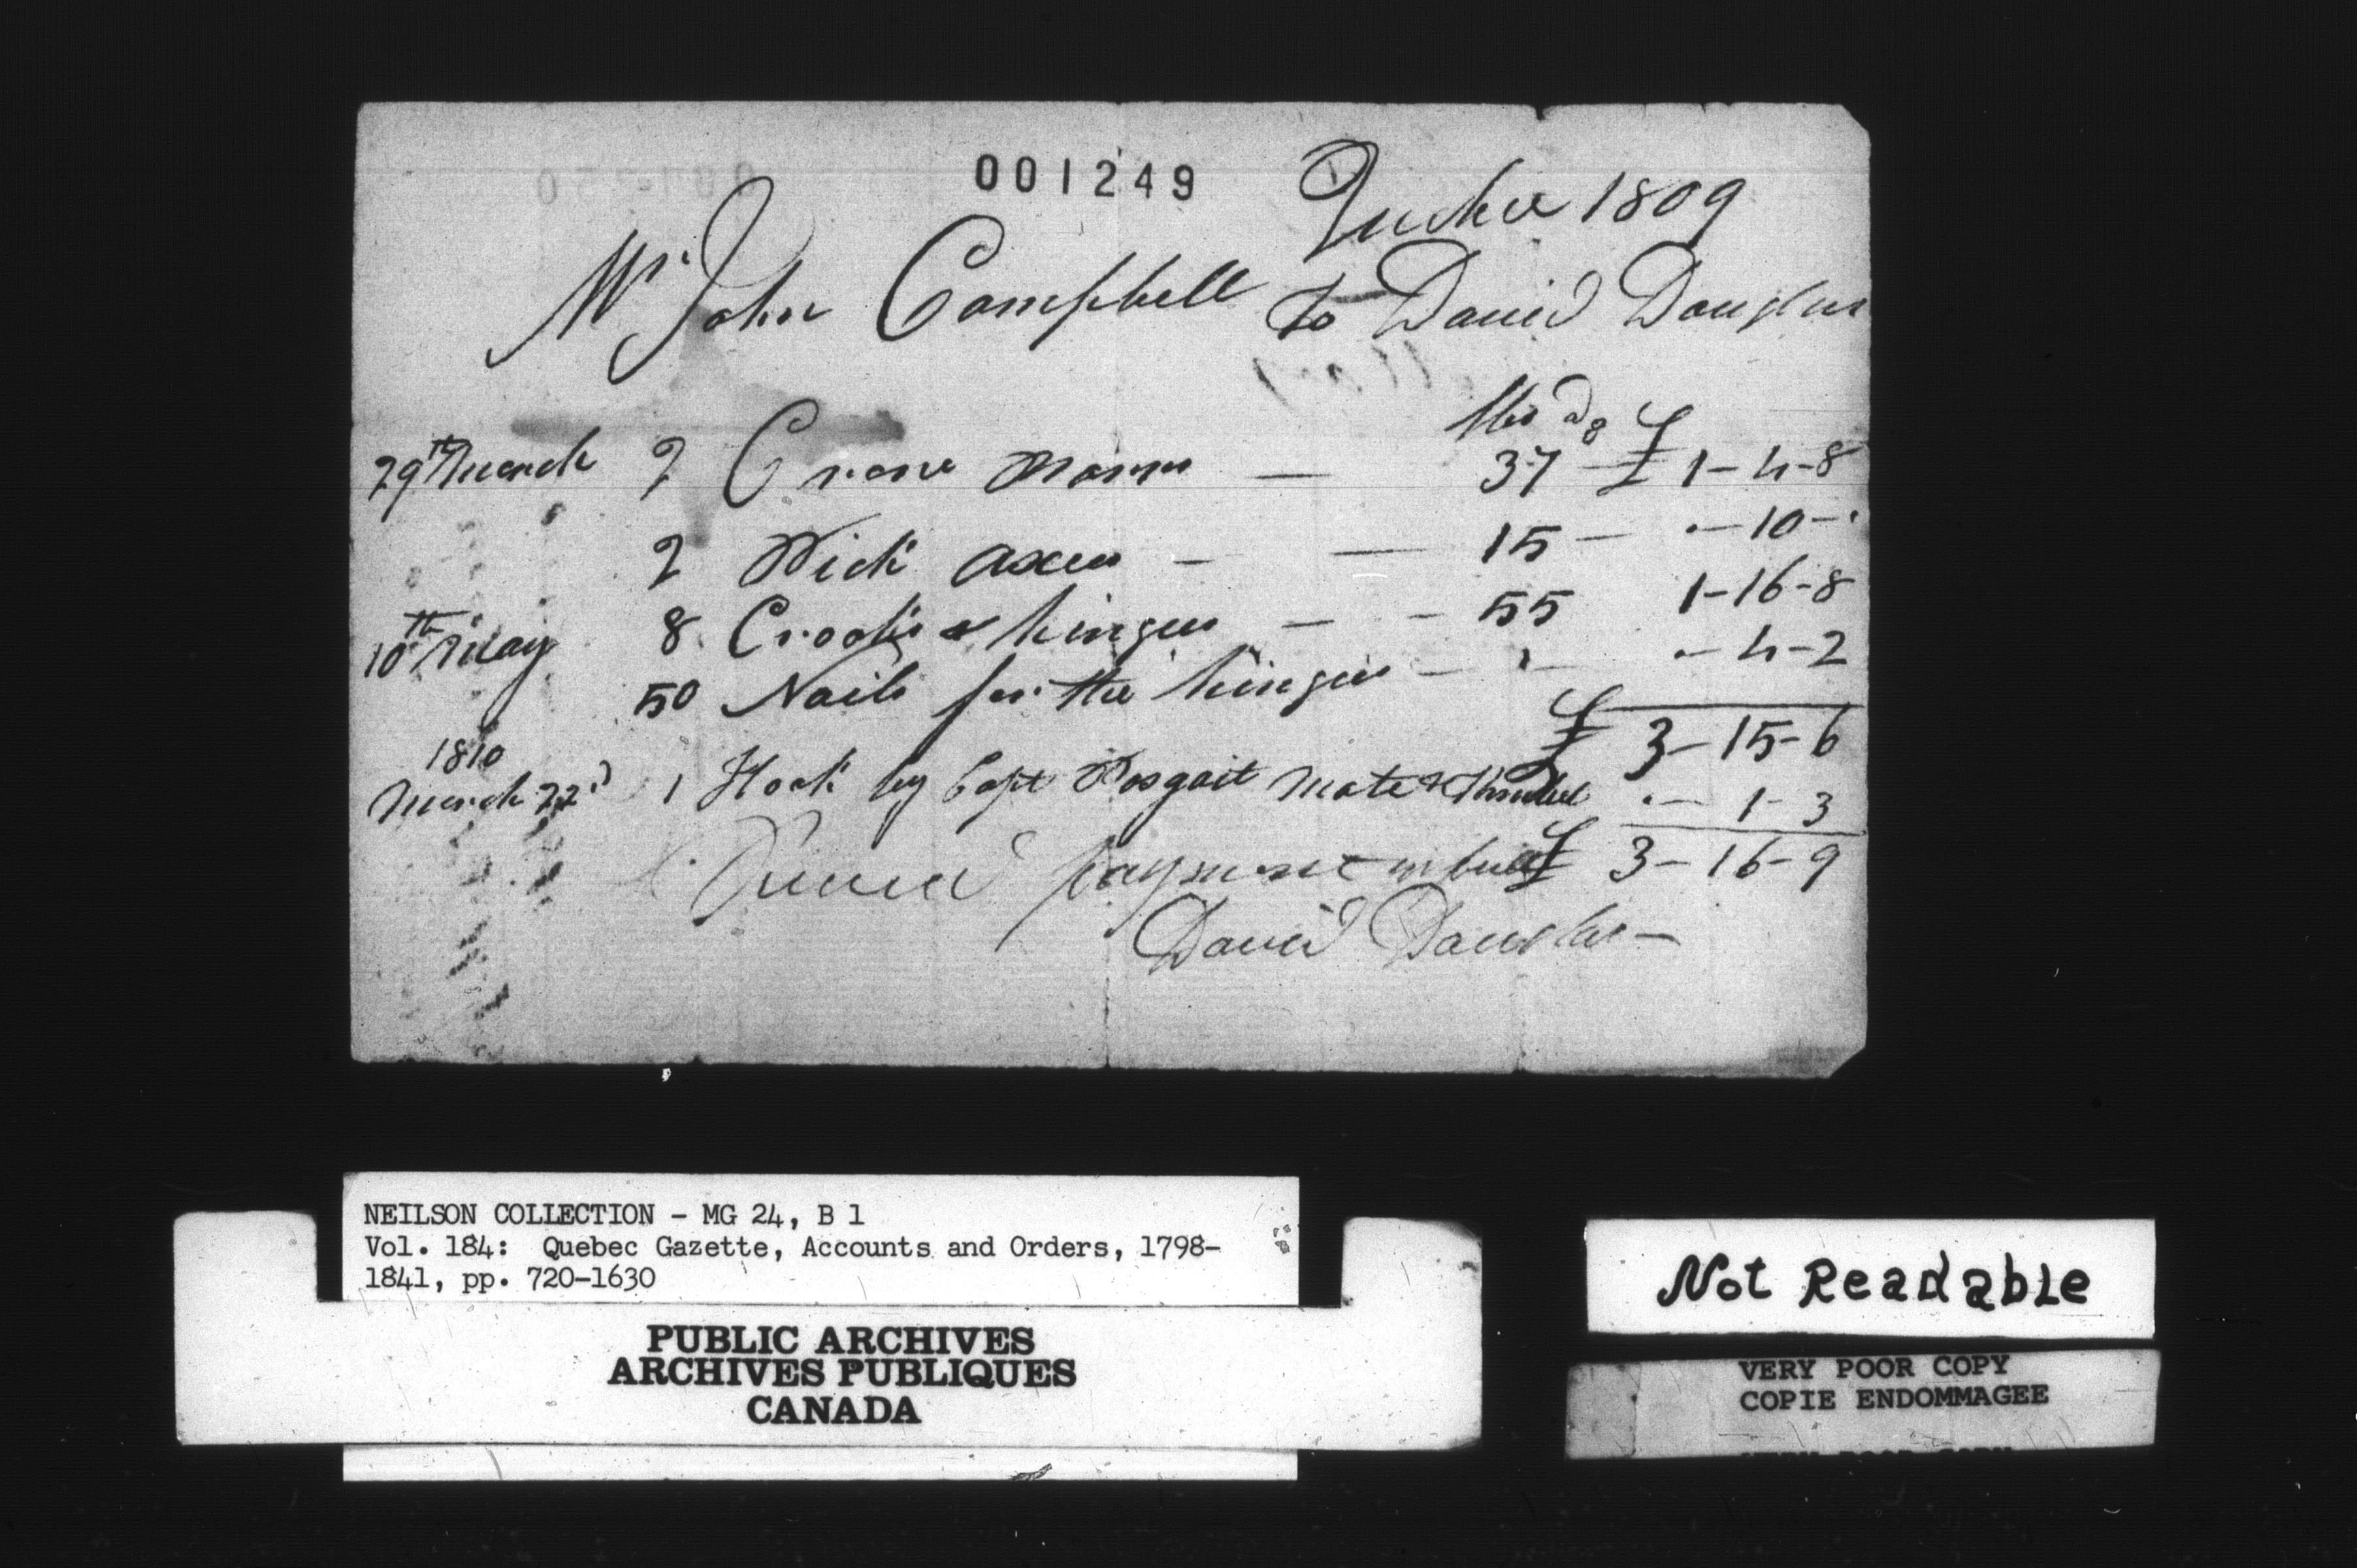 001249
Quebec 1809
Mr John Campbell to David Douglas
lbs d
29th March 2 Crane 37 8 £ 1-4-8
2 Pick axes 15 - 10 -
10th May 8 Crooks & hinges - - 55 1-16-8
50 Nails for the hinges - - 4-2
£ 3-15-6
1810
March 22d 1 Hook by Capt mate & - 1-3
payment in full £ 3-16-9
David Douglas
NEILSON COLLECTION - MG 24, B 1
Vol. 184: Quebec Gazette, Accounts and Orders, 1798-
1841, pp. 720-1630
PUBLIC ARCHIVES
ARCHIVES PUBLIQUES
CANADA
Not Readable
VERY POOR COPY
COPIE ENDOMMAGEE